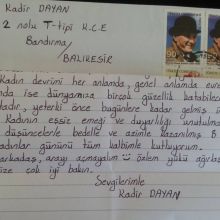 Kadir DAYAN
2 nolu T-tipi K.C.E
Bandırma/
BALIKESİR
Kadın devrimi her anlamda, genel anlamda evre
nda ise dünyamıza birçok güzellik katabilen
tadır, yeterki önce bugünlere kadar gelmiş
Kadının eşsiz emeği ve duyarlılığı unutulma
düşüncelerle bedelle ve azimle kazanılmış 8
adınlar gününü tüm kalbimle kutluyorum.
arkadaş, arayı açmayalım özlem yükü ağırba
ize çok iyi bakın.
Sevgilerimle
Kadir DAYAN